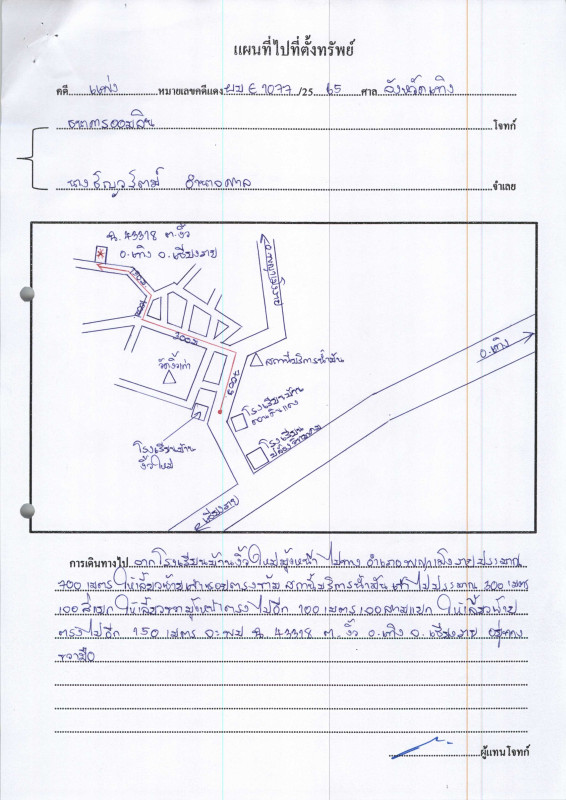 แผนที่ไปที่ตั้งทรัพย์
คดี แพ่ง หมายเลขคดีแดง ผบE1077 /25 65 ศาล จังหวัดเทิง
ธนาคารออมสิน โจทก์
นาง จำเลย
ฉ. 43318 ต. งิ้ว
อ. เทิง จ. เชียงราย
อ.พญาเม็งราย
อ. เทิง
สถานีบริการน้ำมัน
วัดงิ้วเก่า
โรงเรียนบ้าน
งิ้วใหม่
โรงเรียนบ้าน
โรงเรียน
จ.เชียงราย
การเดินทางไป จากโรงเรียนบ้านงิ้วใหม่มุ่งหน้า ไปทาง อำเภอพญาเม็งรายประมาณ
700 เมตร ให้เลี้ยวซ้ายเข้าซอยตรงข้าม สถานีบริการน้ำมัน เข้าไปประมาณ 300 เมตร
เจอสี่แยก ให้เลี้ยวขวามุ่งหน้าตรงไปอีก 100 เมตร เจอสามแยก ให้เลี้ยวซ้าย
ตรงไปอีก 150 เมตร จะพบ ฉ. 43318 ต. งิ้ว อ. เทิง จ. เชียงราย อยู่ทาง
ขวามือ
ผู้แทนโจทก์